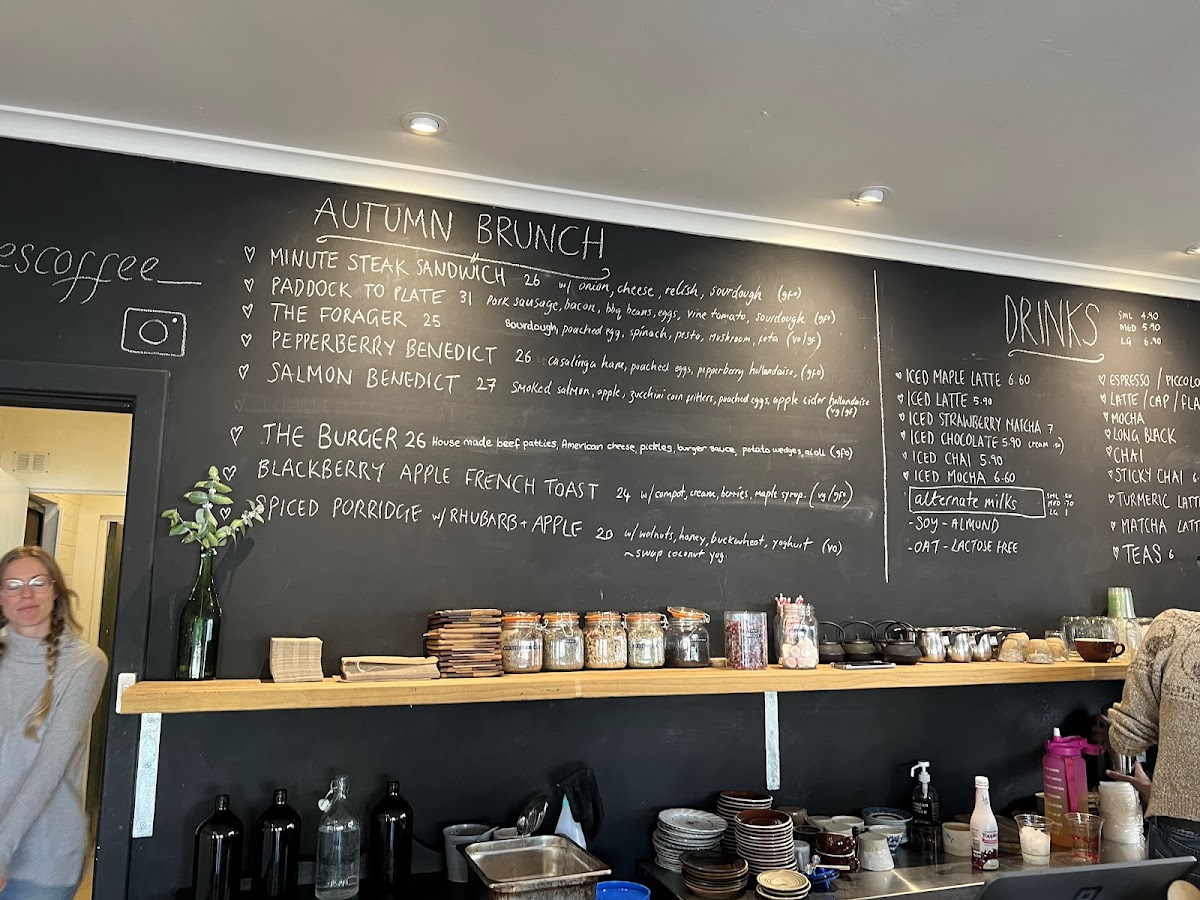 escoffee
AUTUMN BRUNCH
MINUTE STEAK SANDWICH 26 w/ onion, cheese, relish, sourdough (gfo)
PADDOCK TO PLATE 31 Pork sausage, bacon, bbq beans, eggs, vine tomato, sourdough (gfo)
THE FORAGER 25 Sourdough, poached egg, spinach, pesto, mushroom, feta (vo/gf)
PEPPERBERRY BENEDICT 26 casalinga ham, poached eggs, pepperberry hollandaise, (gfo)
SALMON BENEDICT 27 Smoked salmon, apple, zucchini corn fritters, poached eggs, apple cider hollandaise
(vg/gf)
THE BURGER 26 House made beef patties, American cheese, pickles, burger sauce, potato wedges, aioli (gfo)
BLACKBERRY APPLE FRENCH TOAST 24 w/ compot, cream, berries, maple syrup. (vg/gfo)
SPICED PORRIDGE w/ RHUBARB + APPLE 20 w/ walnuts, honey, buckwheat, yoghurt (vo)
~swap coconut yog.
DRINKS
SML 4.90
MED 5.90
LG 6.90
ICED MAPLE LATTE 6.60
ICED LATTE 5.90
ICED STRAWBERRY MATCHA 7
ICED CHOCOLATE 5.90 cream
ICED CHAI 5.90
ICED MOCHA 6.60
alternate milks
SML .50
MED .70
LG 1
-SOY -ALMOND
-OAT -LACTOSE FREE
ESPRESSO / PICCOLO
LATTE / CAP / FLA
MOCHA
LONG BLACK
CHAI
STICKY CHAI
TURMERIC LATT
MATCHA LATT
TEAS 6